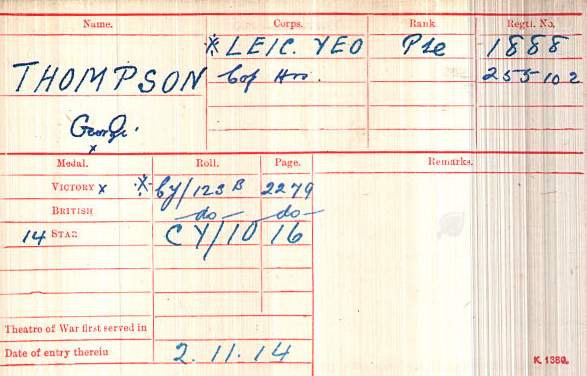 Name. Corps. Rank. Regtl. No.
* LEIC. YEO Pte 1888
THOMPSON Cof Hrs. 255102
George.
x
Medal. Roll. Page. Remarks.
VICTORY x * Cy/123 B 2279
BRITISH —do— —do—
14 STAR CY/10 16
Theatre of War first served in
Date of entry therein 2.11.14
K 1380.